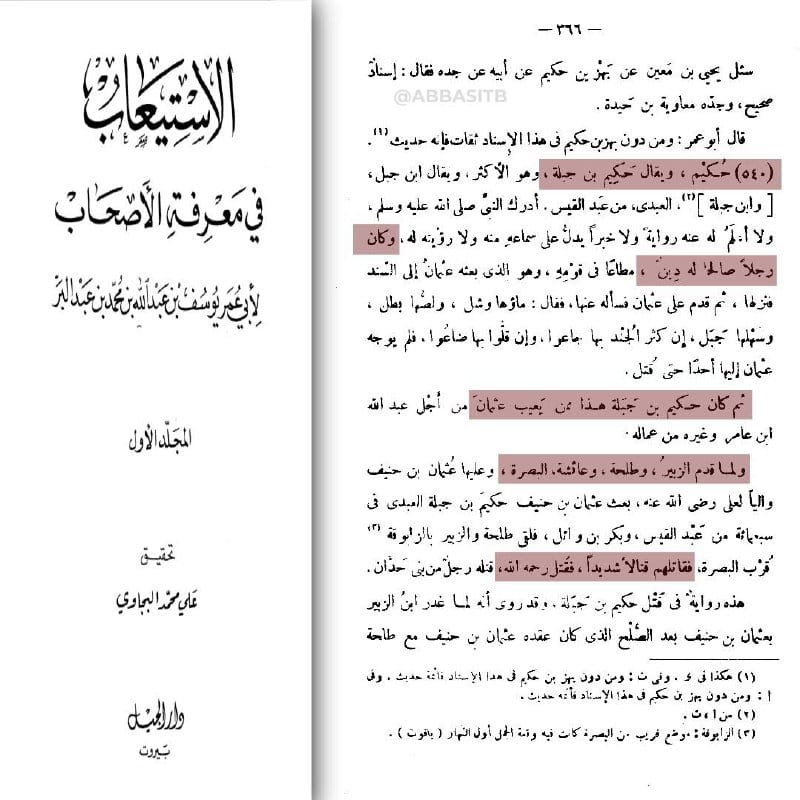 الاستيعاب
في معرفة الأصحاب
لأبي عمر يوسف بن عبدالله بن محمد بن عبدالبر
المجلد الأول
تحقيق
علي محمد البجاوي
دار الجيل
بيروت
— ٣٦٦ —
سئل يحيى بن معين عن بهز بن حكيم عن أبيه عن جده فقال : إسنادٌ
صحيح ، وجدّه معاوية بن حيدة .
@ABBASITB
قال أبو عمر : ومن دون بهز بن حكيم فى هذا الإسناد ثقات فإنه حديث (١) .
(٥٤٠) حُكَيْم ، ويقال حَكِيم بن جبلة ، وهو الأكثر ، ويقال ابن جبل ،
[ وابن جبلة ] (٢) ، العبدى ، من عبد القيس . أدرك النبىَّ صلى الله عليه وسلم ،
ولا أعلمُ له عنه روايةً ولا خبراً يدلُّ على سماعه منه ولا رؤيته له ، وكان
رجلاً صالحاً له دِينٌ ، مطاعًا فى قومه ، وهو الذى بعثه عثمانُ إلى السِّند
فنزلها ، ثم قدم على عثمان فسأله عنها ، فقال : ماؤها وشل ، ولصُّها بطل ،
وسَهْلها جَبَل ، إن كثر الجُنْد بها جاعوا ، وإن قلُّوا بها ضاعُوا ، فلم يوجه
عثمان إليها أحدًا حتى قُتل .
ثم كان حكيم بن جَبَلة هذا ممن يَعيب عثمانَ من أَجْل عبد الله
ابن عامر وغيره من عماله .
ولما قدم الزبيرُ ، وطلحة ، وعائشة البصرة ، وعليها عُثمان بن حنيف
والياً لعلى رضى الله عنه ، بعث عثمان بن حنيف حكيمَ بن جبلة العبدى فى
سبعمائة من عَبْد القيس ، وبكر بن وائل ، فلقى طلحة والزبير بالزابوقة (٣)
قُرْب البصرة ، فقاتلهم قتالاً شديداً ، فقُتل رحمه الله ، قتله رجلٌ من بنى حُدَّان .
هذه روايةٌ فى قَتْل حكيم بن جَبَلة . وقد روى أنه لما غدر ابنُ الزبير
بعثمان بن حنيف بعد الصُّلْح الذى كان عقده عثمان بن حنيف مع طلحة
(١) هكذا فى ى . وفى ت : ومن دون بهز بن حكيم فى هذا الإسناد فأئمة حديث . وفى
أ : ومن دون بهز بن حكيم فى هذا الإسناد فأئمة حديث .
(٢) من أ ، ت .
(٣) الزابوقة : موضع قريب من البصرة كانت فيه وقعة الجمل أول النهار ( ياقوت ) .